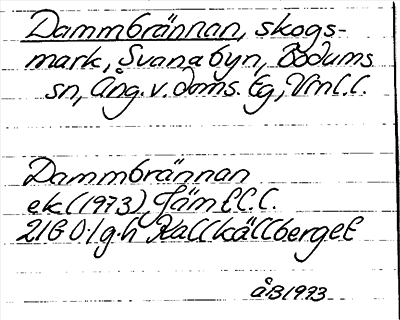 Dammbrännan, skogs-
mark, Svanabyn, Bodums
sn, Ång. v. doms. lg, Vml. l.
Dammbrännan
ek. (1973) Jämtl. l.
21G 0-1 g-h Kallkällberget
ÅB 1973